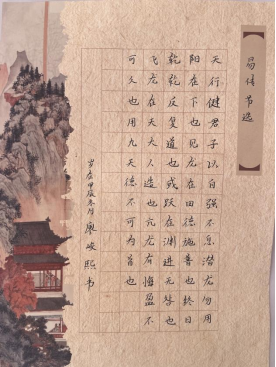 易传节选
天行健君子以自强不息潜龙勿用
阳在下也见龙在田德施普也终日
乾乾反复道也或跃在渊进无咎也
飞龙在天大人造也亢龙有悔盈不
可久也用九天德不可为首也
岁在甲辰 廖峻熙书